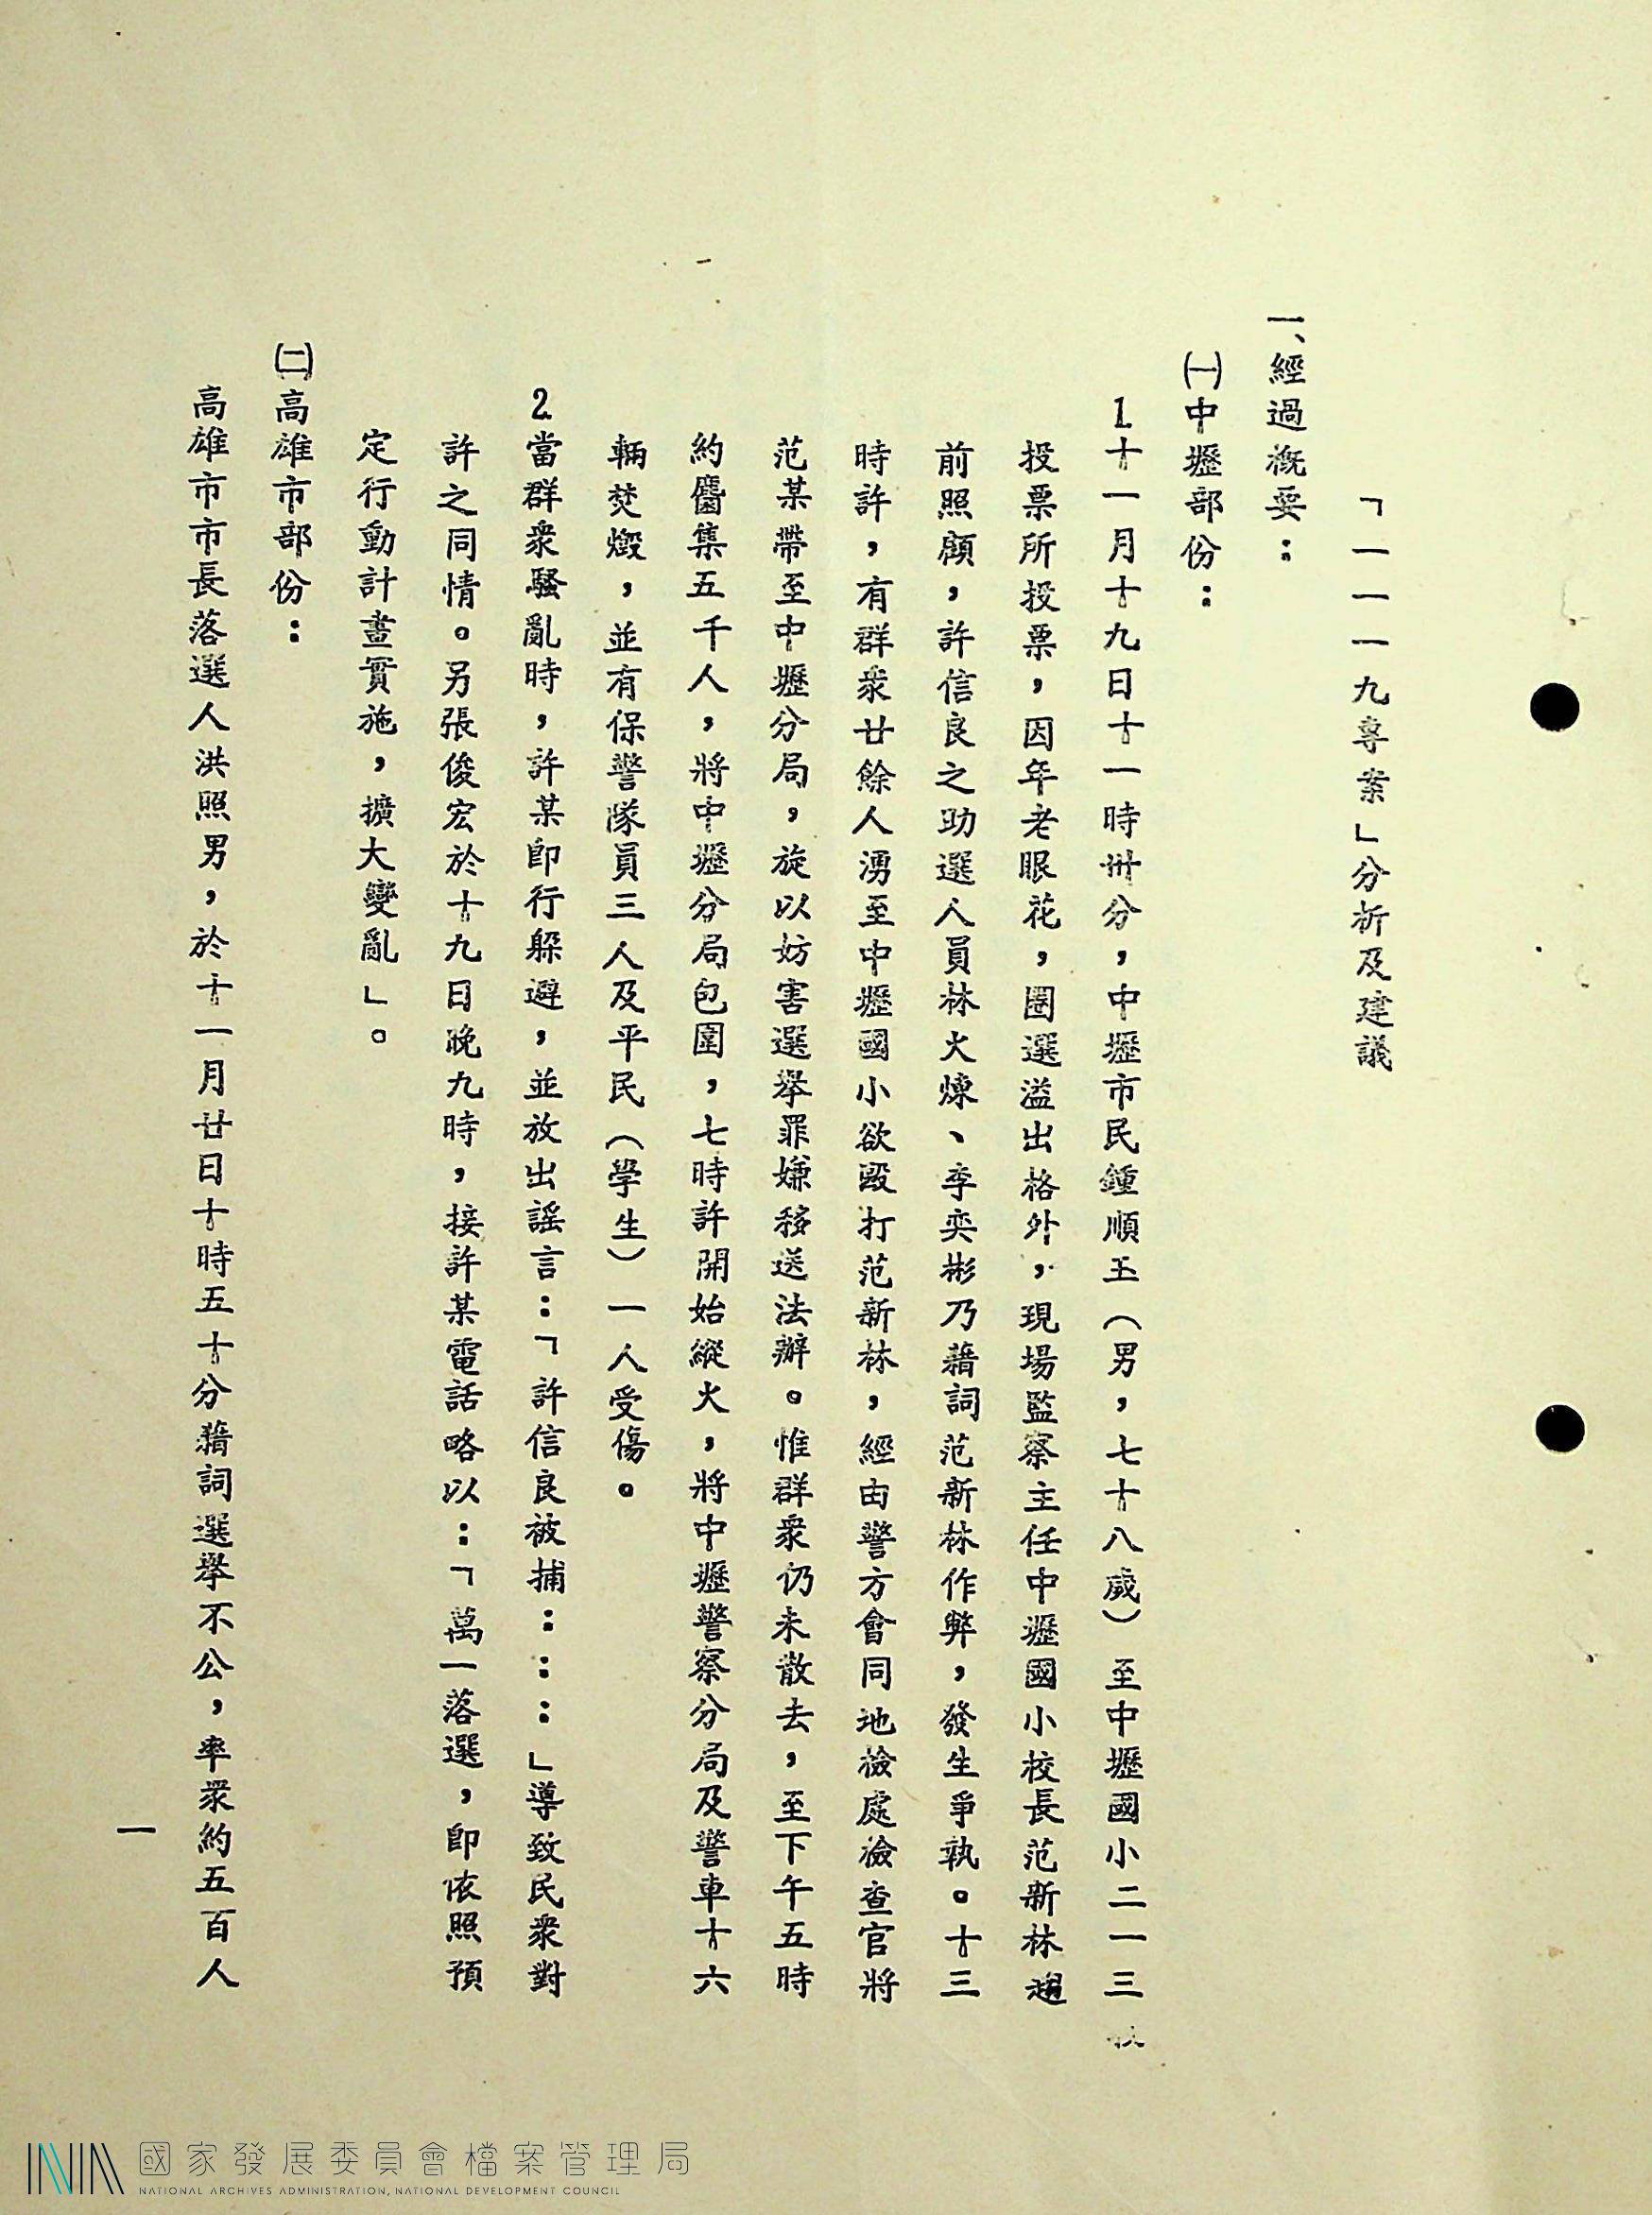 「一一一九專案」分析及建議
一、經過概要：
㈠中壢部份：
1.十一月十九日十一時卅分，中壢市民鍾順玉（男，七十八歲）至中壢國小二一三
投票所投票，因年老眼花，圈選溢出格外，現場監察主任中壢國小校長范新林趨
前照顧，許信良之助選人員林火煉、李奕彬乃藉詞范新林作弊，發生爭執。十三
時許，有群眾廿餘人湧至中壢國小欲毆打范新林，經由警方會同地檢處檢查官將
范某帶至中壢分局，旋以妨害選舉罪嫌移送法辦。惟群眾仍未散去，至下午五時
約麕集五千人，將中壢分局包圍，七時許開始縱火，將中壢警察分局及警車十六
輛焚燬，並有保警隊員三人及平民（學生）一人受傷。
2.當群眾騷亂時，許某即行躲避，並放出謠言：「許信良被捕………」導致民眾對
許之同情。另張俊宏於十九日晚九時，接許某電話略以：「萬一落選，即依照預
定行動計畫實施，擴大變亂」。
㈡高雄市部份：
高雄市市長落選人洪照男，於十一月廿日十時五十分藉詞選舉不公，率眾約五百人
一
國家發展委員會檔案管理局
NATIONAL ARCHIVES ADMINISTRATION, NATIONAL DEVELOPMENT COUNCIL